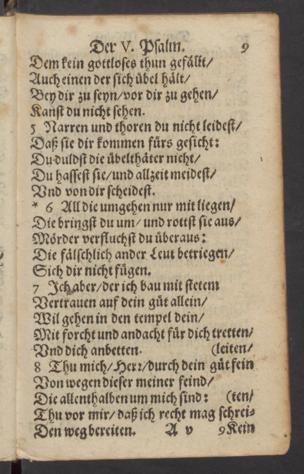 Der V. Psalm. 9
Dem kein gottloses thun gefällt/
Auch einen der sich übel hält/
Bey dir zu seyn/ vor dir zu gehen/
Kanst du nicht sehen.
5 Narren und thoren du nicht leidest/
Daß sie dir kommen fürs gesicht:
Du duldst die übelthäter nicht/
Du hassest sie/ und allzeit meidest/
Vnd von dir scheidest.
* 6 All die umgehen nur mit liegen/
Die bringst du um/ und rottst sie aus/
Mörder verfluchst du überaus:
Die fälschlich ander Leut betriegen/
Sich dir nicht fügen.
7 Ich aber/ der ich bau mit stetem
Vertrauen auf dein güt allein/
Wil gehen in den tempel dein/
Mit forcht und andacht für dich tretten/
Vnd dich anbetten. (leiten/
8 Thu mich/ Herz/ durch dein güt fein
Von wegen dieser meiner feind/
Die allenthalben um mich sind: (ten/
Thu vor mir/ daß ich recht mag schrei-
Den weg bereiten. A v 9 Kein